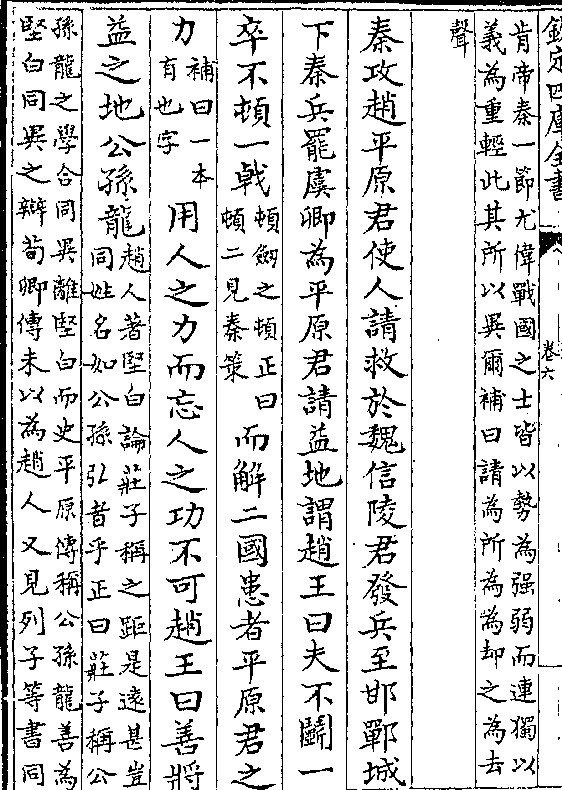 欽定四庫全書
卷六
肯帝秦一節尤偉戰國之士皆以勢為强弱而連獨以
義為重輕此其所以異爾補曰請為所為為却之為去
聲
秦攻趙平原君使人請救於魏信陵君發兵至邯鄲城
下秦兵罷虞卿為平原君請益地謂趙王曰夫不鬬一
卒不頓一戟頓劔之頓正曰頓二見秦策而解二國患者平原君之
力補曰一本有也字用人之力而忘人之功不可趙王曰善將
益之地公孫龍趙人著堅白論莊子稱之距是逺甚豈同姓名如公孫弘者乎正曰莊子稱公
孫龍之學合同異離堅白而史平原傳稱公孫龍善為
堅白同異之辯荀卿傳末以為趙人又見列子等書同